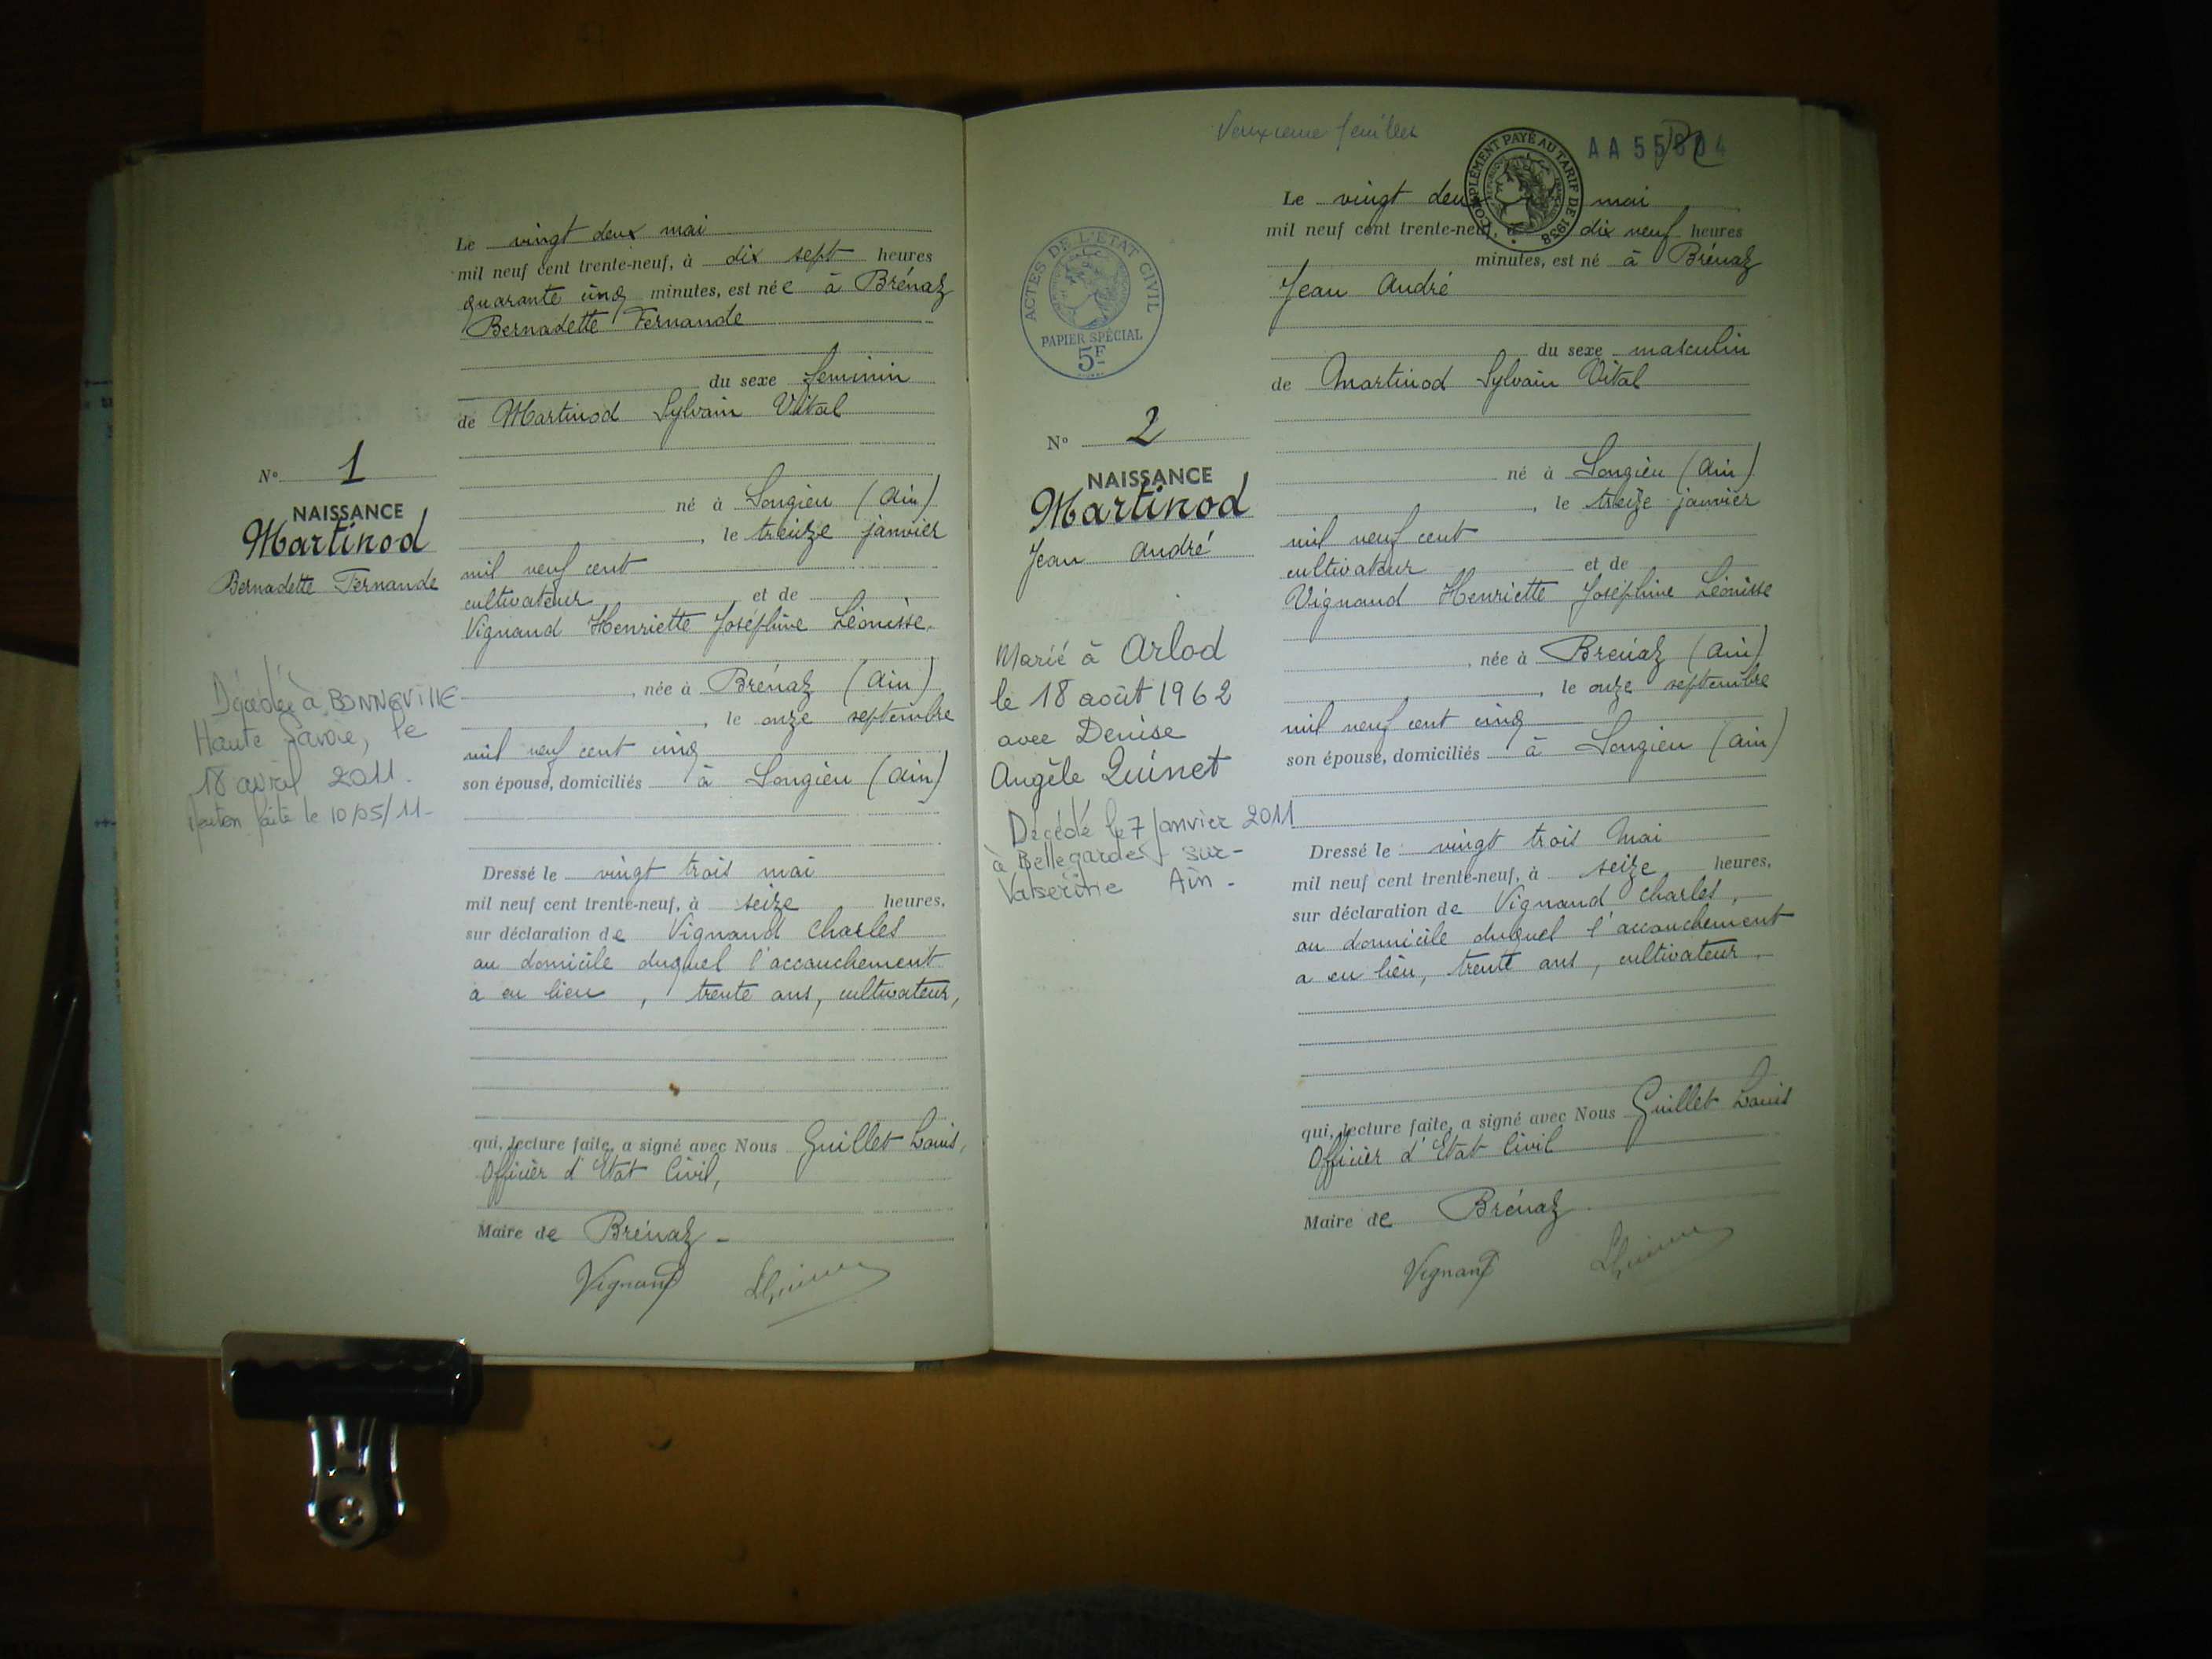 Le vingt deux mai
mil neuf cent trente-neuf, à dix sept heures
quarante cinq minutes, est née à Brénaz
Bernadette Fernande
du sexe feminin
de Martinod Sylvain Vital
N° 1
NAISSANCE
Martinod
Bernadette Fernande
né à Songieu (Ain)
, le treize janvier
mil neuf cent
cultivateur et de
Vignand Henriette Joséphine Léonisse.
Décédée à BONNEVILLE
Haute Savoie, le
18 avril 2011.
Mention faite le 10/05/11-
, née à Brénaz (Ain)
, le onze septembre
mil neuf cent cinq
son épouse, domiciliés à Songieu (Ain)
Dressé le vingt trois mai
mil neuf cent trente-neuf, à seize heures,
sur déclaration de Vignand Charles
au domicile duquel l'accouchement
a eu lieu, trente ans, cultivateur,
qui, lecture faite, a signé avec Nous Guillet Louis,
Officier d'Etat Civil,
Maire de Brénaz -
Vignand
Deuxième feuillet
COMPLÉMENT PAYÉ AU TARIF DE 1938
AA 55804
Le vingt deux mai
mil neuf cent trente-neuf, à dix neuf heures
minutes, est né à Brénaz
Jean André
ACTES DE L'ÉTAT CIVIL
PAPIER SPÉCIAL
5F
du sexe masculin
de Martinod Sylvain Vital
N° 2
NAISSANCE
Martinod
Jean André
né à Songieu (Ain)
, le treize janvier
mil neuf cent
cultivateur et de
Vignand Henriette Joséphine Léonisse
Marié à Arlod
le 18 août 1962
avec Denise
Angèle Quinet
Décédé le 7 Janvier 2011
à Bellegarde sur-
Valserine Ain -
, née à Brénaz (Ain)
, le onze septembre
mil neuf cent cinq
son épouse, domiciliés à Songieu (Ain)
Dressé le vingt trois mai
mil neuf cent trente-neuf, à seize heures,
sur déclaration de Vignand Charles,
au domicile duquel l'accouchement
a eu lieu, trente ans, cultivateur,
qui, lecture faite, a signé avec Nous Guillet Louis
Officier d'Etat Civil
Maire de Brénaz
Vignand